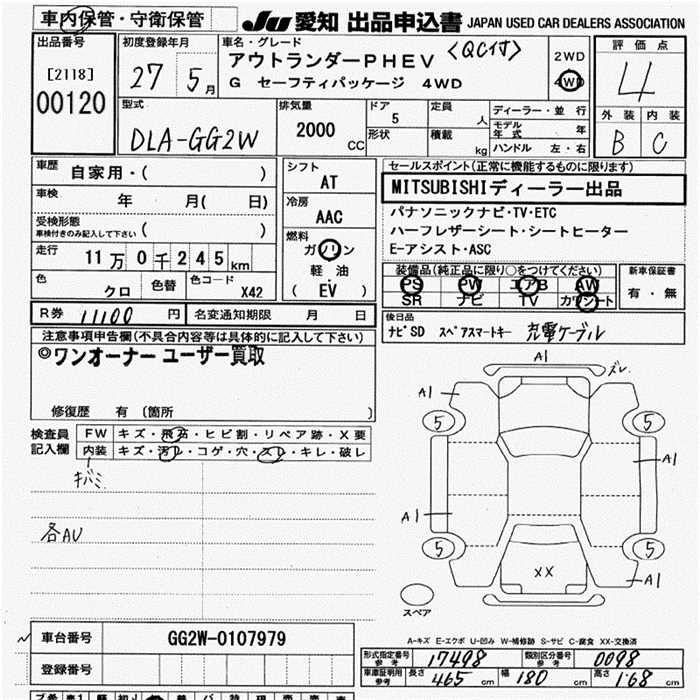 車内保管・守衛保管
JU 愛知 出品申込書 JAPAN USED CAR DEALERS ASSOCIATION
出品番号
[2118]
00120
初度登録年月
27 5月
車名・グレード
アウトランダーPHEV <QC付>
G セーフティパッケージ 4WD
2WD
4WD
評価点
4
外装 内装
B C
型式
DLA-GG2W
排気量
2000
CC
ドア
5
形状
定員
人
積載
kg
ディーラー・並行
モデル年式 年
ハンドル 左・右
車歴
自家用・( )
車検
年 月( 日)
受検形態
車検付きのみ記入して下さい ( )
走行
11万0千245km
色
クロ
色替
色コード
X42
シフト
AT
冷房
AAC
燃料
ガソリン
軽・油
( EV )
セールスポイント(正常に機能するものに限ります)
MITSUBISHIディーラー出品
パナソニックナビ・TV・ETC
ハーフレザーシート・シートヒーター
E-アシスト・ASC
装備品(純正品に限り○をつけてください)
PS PW エアB AW
SR ナビ TV カワシート
新車保証書
有・無
R券 11100円
名変通知期限 月 日
後日品
ナビSD スペアスマートキー 充電ケーブル
注意事項申告欄(不具合内容等は具体的に記入して下さい)
◎ワンオーナー ユーザー買取
修復歴 有(箇所 )
検査員記入欄
FW キズ・飛石・ヒビ割・リペア跡・X要
内装 キズ・汚レ・コゲ・穴・スレ・キレ・破レ
キバミ
各AU
A1
ズレ
A1
5
5
A1
A1
5
5
XX
A1
スペア
A-キズ E-エクボ U-凹み W-補修跡 S-サビ C-腐食 XX-交換済
車台番号
GG2W-0107979
登録番号
型式指定番号 参考 17498
類別区分番号 参考 0098
車庫証明用 参考 長さ 465cm 幅 180cm 高さ 168cm